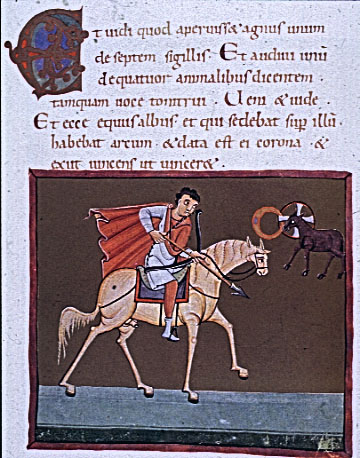 Et uidi quod aperuiss& agnus unum
de septem sigillis · Et audiui unū
de quatuor animalibus dicentem ·
tamquam uoce tonitrui · Ueni & uide ·
Et ecce equus albus · et qui sedebat sup̄ illū
habebat arcum · & data est ei corona · &
exiit uincens ut uincer& ·